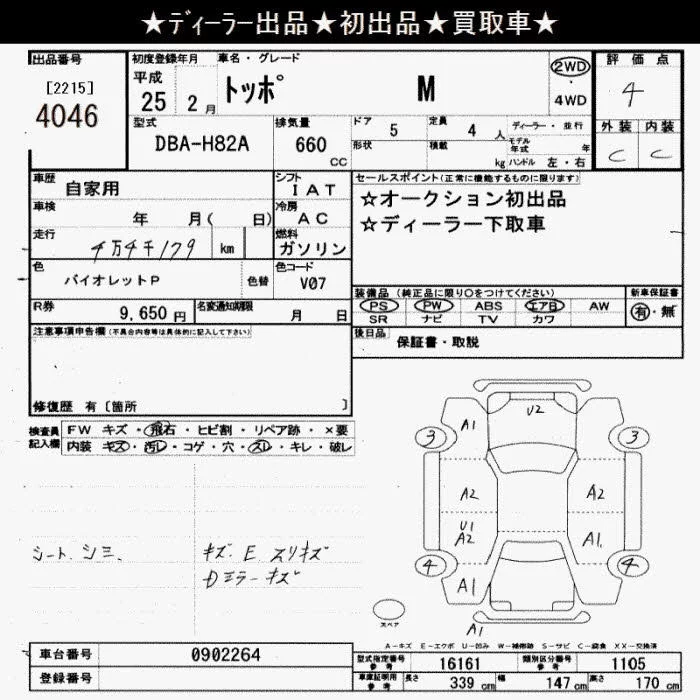 ★ディーラー出品★初出品★買取車★
出品番号
[2215]
4046
初度登録年月
平成
25 2月
車名・グレード
トッポ M
2WD
・
4WD
評価点
4
型式
DBA-H82A
排気量
660
CC
ドア 5
形状
定員 4 人
積載 kg
ディーラー・並行
モデル年式 年
ハンドル 左・右
外装 内装
C C
車歴 自家用
シフト IAT
セールスポイント(正常に機能するものに限ります)
☆オークション初出品
☆ディーラー下取車
車検 年 月( 日)
冷房 AC
走行 4万4千179 km
燃料 ガソリン
色 バイオレットP 色替
色コード V07
装備品(純正品に限り○をつけてください)
PS PW ABS エアB AW
SR ナビ TV カワ
新車保証書
有・無
R券 9,650円
名変通知期限 月 日
後日品 保証書・取説
注意事項申告欄(不具合内容等は具体的に記入して下さい)
修復歴 有〔箇所 〕
検査員記入欄
FW キズ・飛石・ヒビ割・リペア跡・×要
内装 キズ・汚レ・コゲ・穴・スレ・キレ・破レ
シート シミ、
キズ E スリキズ
Dミラーキズ
U2
A1
3 3
A2 A2
U1
A2 A1
4 4
A1
スペア
A1
A-キズ E-エクボ U-凹み W-補修跡 S-サビ C-腐食 XX-交換済
車台番号 0902264
登録番号
型式指定番号参考 16161
類別区分番号参考 1105
車庫証明用参考 長さ 339 cm 幅 147 cm 高さ 170 cm